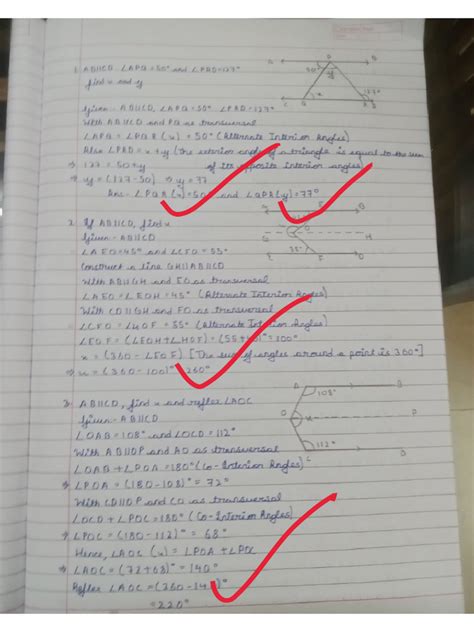 1. AB||CD. ∠APQ = 50° and ∠PRD = 127°
find x and y
Given - AB||CD, ∠APQ = 50° ∠PRD = 127°
With AB||CD and PQ as transversal
∠APQ = ∠PQR (x) = 50° (Alternate Interior Angles)
Also ∠PRD = x+y (the exterior angle of a triangle is equal to the sum
of its opposite interior angles)
⇒ 127 = 50+y
⇒ y = (127-50) ⇒ y = 77
Ans - ∠PQR (x) = 50 and ∠QPR(y) = 77°
2. If AB||CD, find x
Given - AB||CD
∠AEO = 45° and ∠CFO = 55°
Construct a line GH||AB||CD
With AB||GH and EO as transversal
∠AEO = ∠EOH = 45° (Alternate Interior Angles)
With CD||GH and FO as transversal
∠CFO = ∠HOF = 55° (Alternate Interior Angles)
∠EOF = (∠EOH + ∠HOF) = (55+45)° = 100°
x = (360 - ∠EOF) [The sum of angles around a point is 360°]
⇒ x = (360-100)° = 260°
3. AB||CD, find x and reflex ∠AOC
Given - AB||CD
∠OAB = 108° and ∠OCD = 112°
With AB||OP and AO as transversal
∠OAB + ∠POA = 180° (Co-Interior Angles)
⇒ ∠POA = (180-108)° = 72°
With CD||OP and CO as transversal
∠OCD + ∠POC = 180° (Co-Interior Angles)
⇒ ∠POC = (180-112)° = 68°
Hence, ∠AOC (x) = ∠POA + ∠POC
⇒ ∠AOC = (72+68)° = 140°
Reflex ∠AOC = (360-140)°
= 220°
108°
112°